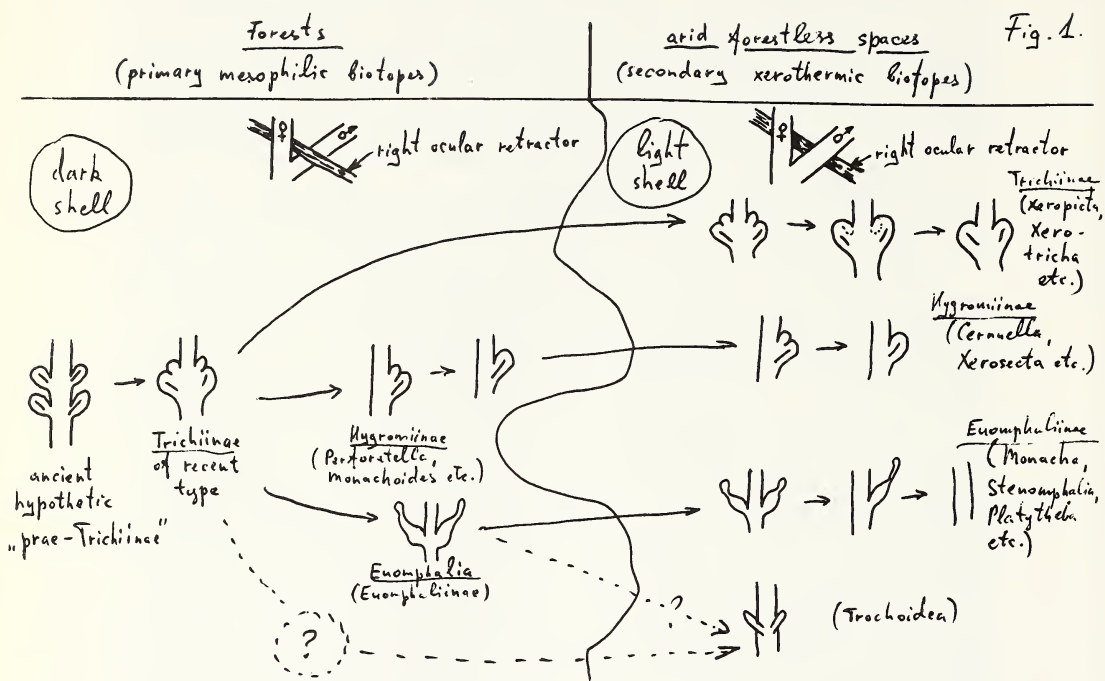 Forests
(primary mesophilic biotopes)
arid forestless spaces
(secondary xerothermic biotopes)
Fig. 1.
dark
shell
♀
♂
right ocular retractor
light
shell
♀
♂
right ocular retractor
Trichiinae
(Xeropicta,
Xero-
tricha
etc.)
Hygromiinae
(Cernuella,
Xerosecta etc.)
ancient
hypothetic
„prae-Trichiinae"
Trichiinae
of recent
type
Hygromiinae
(Perforatella,
monachoides etc.)
Euomphalia
(Euomphaliinae)
Euomphaliinae
(Monacha,
Stenomphalia,
Platytheba
etc.)
?
?
(Trochoidea)